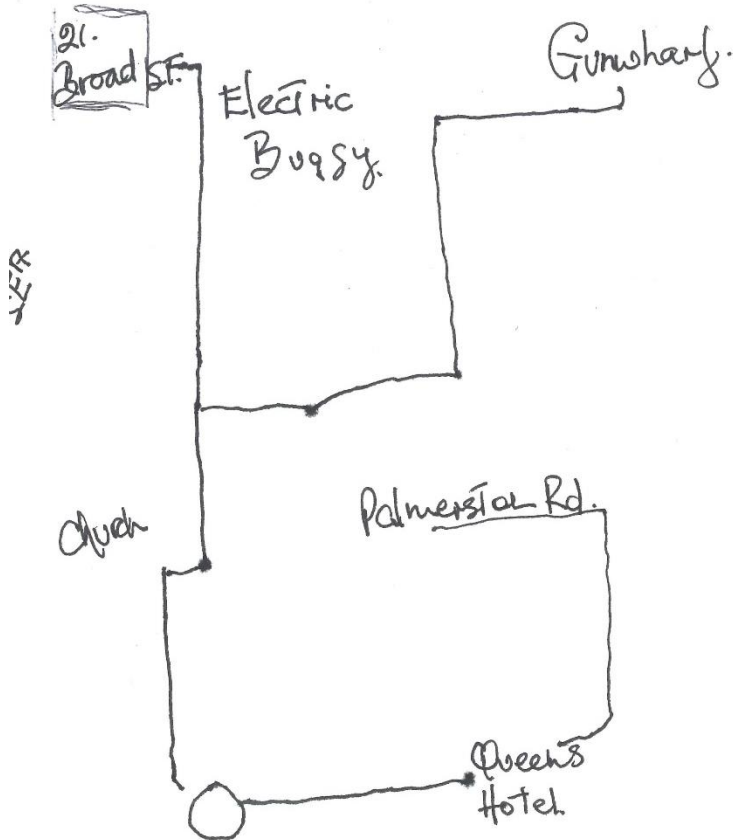 21.
Broad ST.
Electric
Buggy.
Gunwharf.
Church
Palmerston Rd.
Queens
Hotel